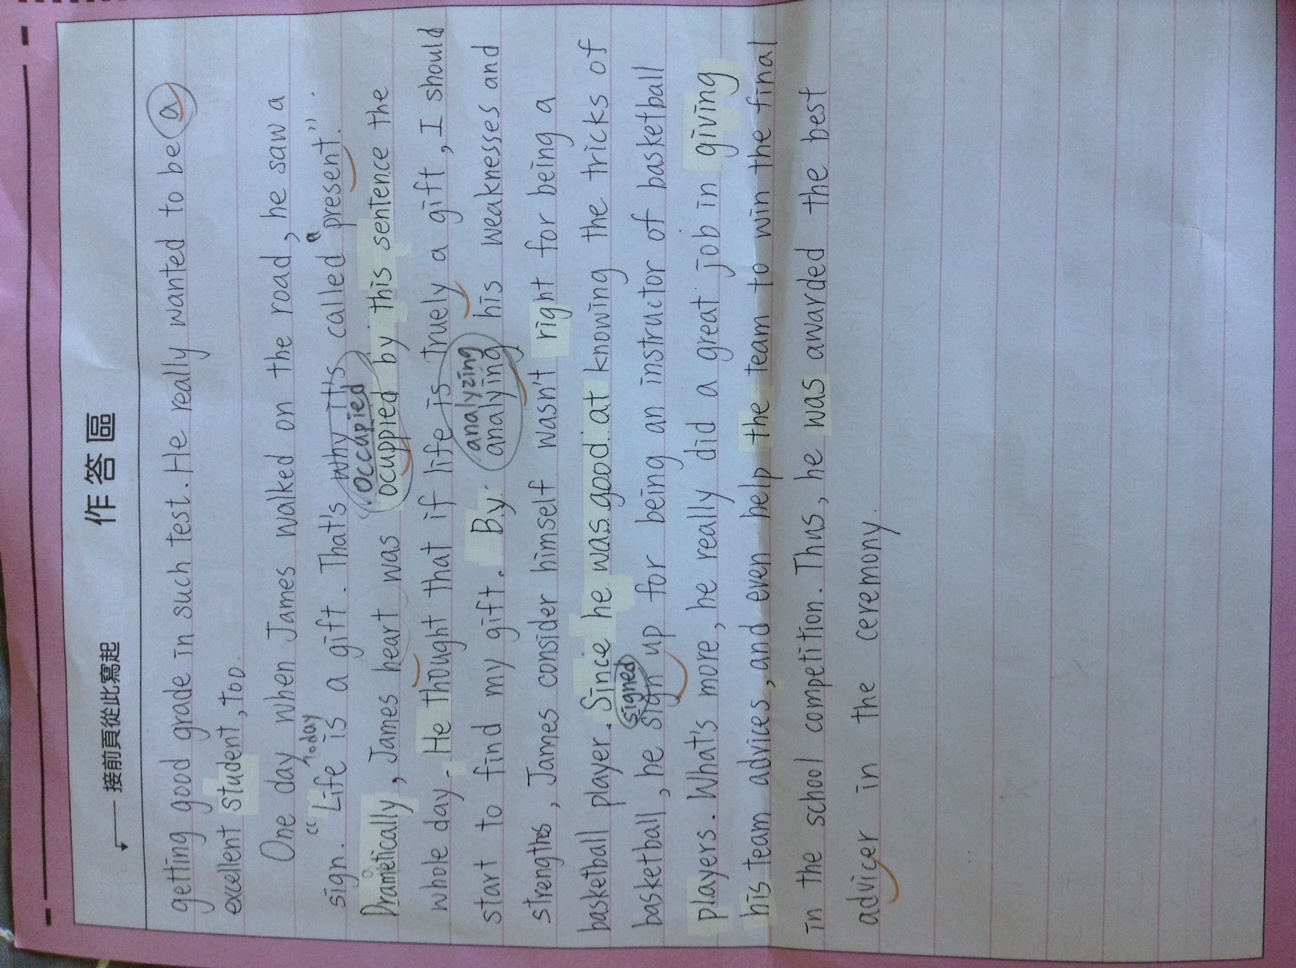 作答區
接前頁從此寫起
getting good grade in such test. He really wanted to be a
excellent student, too.
One day when James walked on the road, he saw a
today
sign. "Life is a gift. That's why it's called a present".
occupied
Drametically, James heart was ocuppied by this sentence the
whole day. He thought that if life is truely a gift, I should
analyzing
start to find my gift. By analying his weaknesses and
strengthes, James consider himself wasn't right for being a
basketball player. Since he was good at knowing the tricks of
signed
basketball, he sign up for being an instructor of basketball
players. What's more, he really did a great job in giving
his team advices, and even help the team to win the final
in the school competition. Thus, he was awarded the best
advicer in the ceremony.